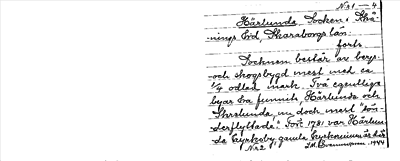 Nr 1 — 4.
Härlunda Socken i Skå-
nings hrd Skaraborgs län:
forts
Socknen består av bergs-
och skogsbygd mest med ca
1/4 odlad mark. Två egentliga
byar ha funnits, Härlunda och
nu doch mest "sön-
derflyttade". Före 1781 var Härlun-
da kyrkoby, gamla kyrkoruinen är här
Nr 2 1944